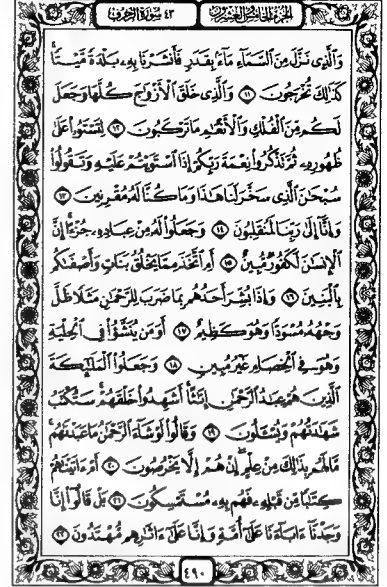 الجزء الخامس والعشرون ٤٣ سورة الزخرف
وَٱلَّذِى نَزَّلَ مِنَ ٱلسَّمَآءِ مَآءَۢ بِقَدَرٍ فَأَنشَرْنَا بِهِۦ بَلْدَةً مَّيْتًاۚ
كَذَٰلِكَ تُخْرَجُونَ ۝١١ وَٱلَّذِى خَلَقَ ٱلْأَزْوَٰجَ كُلَّهَا وَجَعَلَ
لَكُم مِّنَ ٱلْفُلْكِ وَٱلْأَنْعَٰمِ مَا تَرْكَبُونَ ۝١٢ لِتَسْتَوُۥا۟ عَلَىٰ
ظُهُورِهِۦ ثُمَّ تَذْكُرُوا۟ نِعْمَةَ رَبِّكُمْ إِذَا ٱسْتَوَيْتُمْ عَلَيْهِ وَتَقُولُوا۟
سُبْحَٰنَ ٱلَّذِى سَخَّرَ لَنَا هَٰذَا وَمَا كُنَّا لَهُۥ مُقْرِنِينَ ۝١٣
وَإِنَّآ إِلَىٰ رَبِّنَا لَمُنقَلِبُونَ ۝١٤ وَجَعَلُوا۟ لَهُۥ مِنْ عِبَادِهِۦ جُزْءًاۚ إِنَّ
ٱلْإِنسَٰنَ لَكَفُورٌ مُّبِينٌ ۝١٥ أَمِ ٱتَّخَذَ مِمَّا يَخْلُقُ بَنَاتٍ وَأَصْفَىٰكُم
بِٱلْبَنِينَ ۝١٦ وَإِذَا بُشِّرَ أَحَدُهُم بِمَا ضَرَبَ لِلرَّحْمَٰنِ مَثَلًا ظَلَّ
وَجْهُهُۥ مُسْوَدًّا وَهُوَ كَظِيمٌ ۝١٧ أَوَمَن يُنَشَّؤُا۟ فِى ٱلْحِلْيَةِ
وَهُوَ فِى ٱلْخِصَامِ غَيْرُ مُبِينٍ ۝١٨ وَجَعَلُوا۟ ٱلْمَلَٰٓئِكَةَ
ٱلَّذِينَ هُمْ عِبَٰدُ ٱلرَّحْمَٰنِ إِنَٰثًاۚ أَشَهِدُوا۟ خَلْقَهُمْۚ سَتُكْتَبُ
شَهَٰدَتُهُمْ وَيُسْـَٔلُونَ ۝١٩ وَقَالُوا۟ لَوْ شَآءَ ٱلرَّحْمَٰنُ مَا عَبَدْنَٰهُمۗ
مَّا لَهُم بِذَٰلِكَ مِنْ عِلْمٍۖ إِنْ هُمْ إِلَّا يَخْرُصُونَ ۝٢٠ أَمْ ءَاتَيْنَٰهُمْ
كِتَٰبًا مِّن قَبْلِهِۦ فَهُم بِهِۦ مُسْتَمْسِكُونَ ۝٢١ بَلْ قَالُوٓا۟ إِنَّا
وَجَدْنَآ ءَابَآءَنَا عَلَىٰٓ أُمَّةٍ وَإِنَّا عَلَىٰٓ ءَاثَٰرِهِم مُّهْتَدُونَ ۝٢٢
٤٩٠